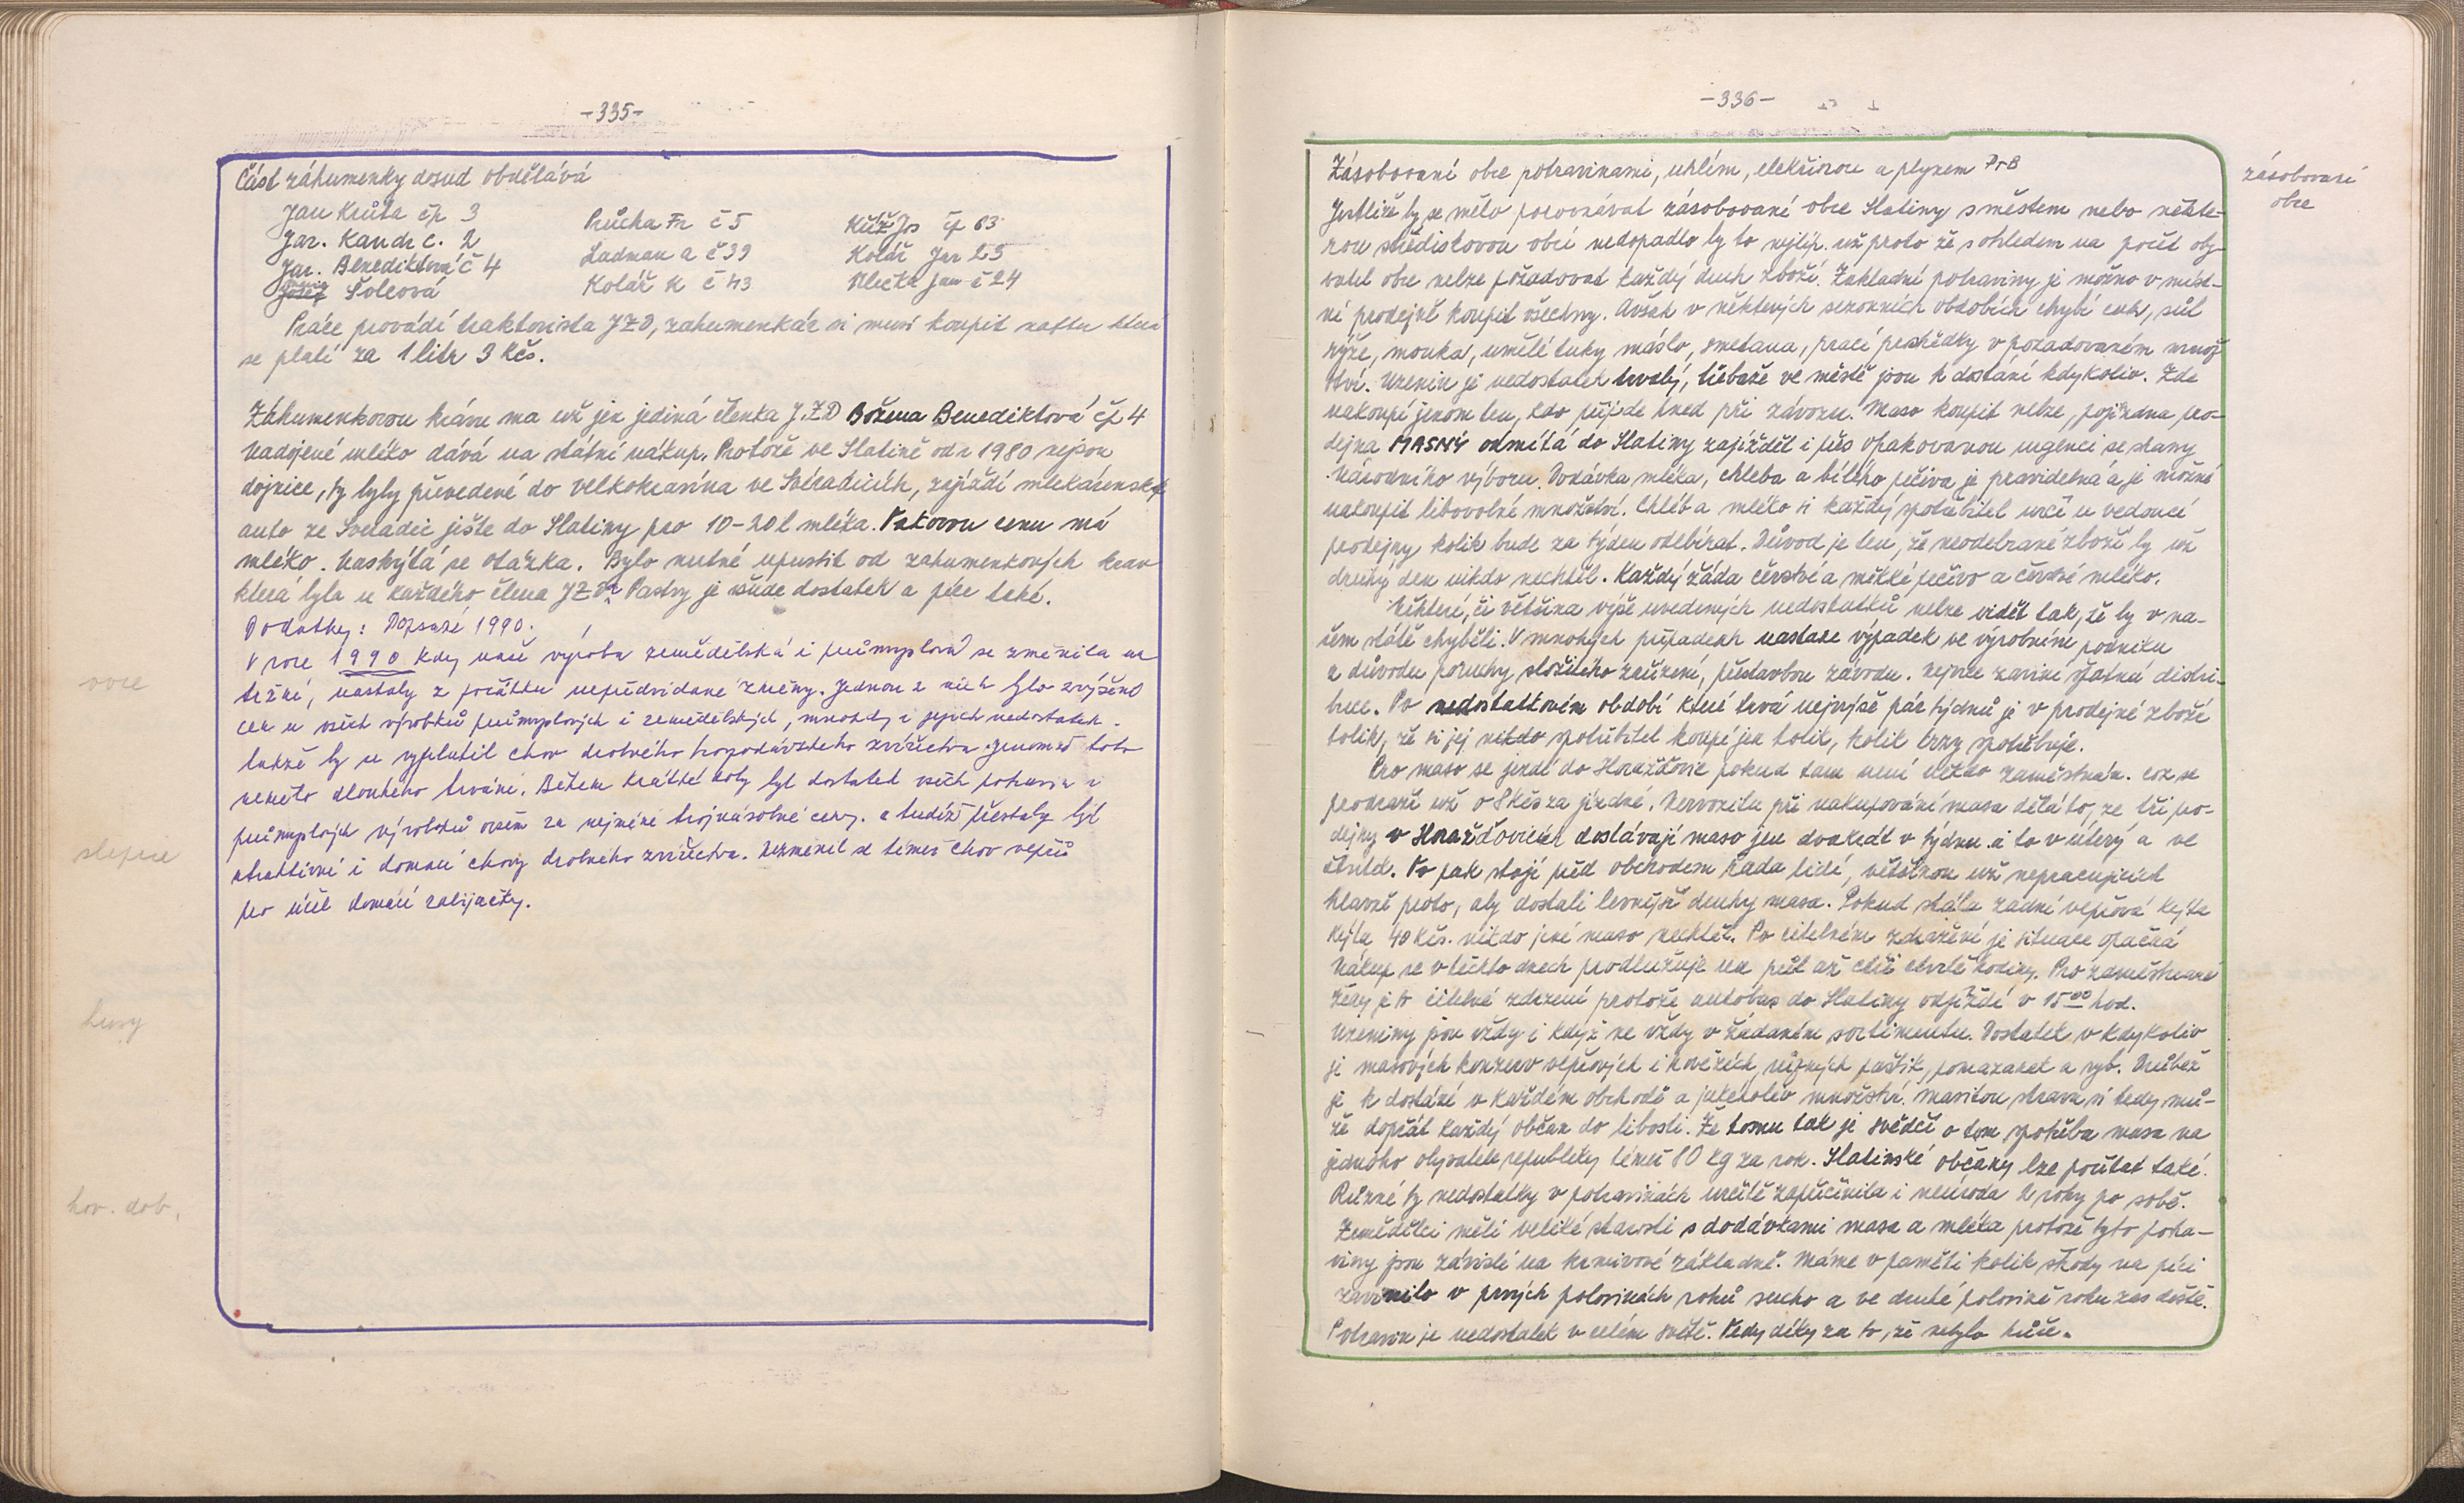 -335-
Část záhumenky dosud obdělává
Jan Krůta čp 3
Jar. Kandr č. 2
Jar. Benediktová č 4
Šolcová
Průcha Fr č 5
Ladman a č 39
Kolář K č 43
Kůž Jos čp 63
Kolář Jar 25
Jan č 24
Práce provádí traktorista JZD, zahumenkář si musí koupit naftu která
se platí za 1 litr 3 Kčs.
Záhumenkovou krávu ma už jen jediná členka J.ZD Božena Benediktová čp 4
Nadojené mléko dává na státní nákup. Protože ve Slatině od r 1980 nejsou
dojnice, ty byly převedené do velkokravína ve Svéradicích, zajíždí mlékárenské
auto ze Sveradic ješte do Slatiny pro 10-20 l mléka. Takovou cenu má
mléko. Naskýtá se otázka. Bylo nutné upustit od zahumenkových krav
která byla u každého člena JZD? Pastvy je všude dostatek a píce také.
Dodatky: Dopsáné 1990.
V roce 1990 kdy naše výroba zemědělská i průmyslová se změnila na
tržní, nastaly z počátku nepředvídané změny. Jednou z nich bylo zvýšení
cen u všech výrobků průmyslových i zemědělských, mnohdy i jejich nedostatek.
takže by se vyplatil chov drobného hospodářského zvířectva. Jenomže toto
nemělo dlouhého trvání. Během krátké doby byl dostatek všech potravin i
průmyslových výrobků ovšem za nejméně trojnásobné ceny. a tudíž přestaly být
atraktivní i domací chovy drobného zvířectva. Nezměnil se téměř chov vepřů
pro účel domácí zabijačky.
ovce
slepice
husy
hov. dob.
-336-
Zásobovaní obce potravinami, uhlím, elektřinou a plynem PrB
zásobovaní
obce
Jestliže by se mělo porovnávat zásobování obce Slatiny s městem nebo někte-
rou střediskovou obcí nedopadlo by to nejlíp. už proto že s ohledem na počet oby-
vatel obce nelze požadovat každý druh zboží. Základní potraviny je možno v míst-
ní prodejně koupit všechny. Avšak v některých sezonních obdobích chybí cukr, sůl
rýže, mouka, umělé tuky máslo, smetana, prací prostředky v požadovaném množ
ství. Uzenin je nedostatek trvalý, třebaže ve městě jsou k dostání kdykoliv. Zde
nakoupí jenom ten, kdo přijde hned při závozu. Maso koupit nelze, pojízdna pro-
dejna MASNÝ odmítá do Slatiny zajíždět i přes opakovanou urgenci se strany
Národního výboru. Dodávka mléka, chleba a bílého pečiva je pravidelná a je možné
nakoupit libovolné množství. Chléb a mléko si každý spotřebitel určí u vedoucí
prodejny kolik bude za týden odebírat. Důvod je ten, že neodebrané zboží by už
druhý den nikdo nechtěl. Každý žáda čerstvé a měkké pečivo a čerstvé mléko.
Některé, či většina výše uvedených nedostatků nelze vidět tak, že by v na-
šem státě chyběli. V mnohých případech nastane výpadek ve výrobním podniku
z důvodu poruchy složitého zařízení, přestavbou závodu. nejvíce zaviní špatná distri-
buce. Po nedostatkovém období které trvá nejvýše pár týdnů je v prodejně zboží
tolik, že si jej nikdo spotřebitel koupí jen tolik, kolik brzy spotřebuje.
Pro maso se jezdí do Horažďovic pokud tam není někdo zaměstnán. což se
prodraží už o 8 Kčs za jízdné. Nervozitu při nakupování masa dělá to, že tři pro-
dejny v Horažďovicích dostávají maso jen dvakrát v týdnu. a to v úterý a ve
čtvrtek. To pak stojí před obchodem řada lidí, většinou už nepracujících
hlavně proto, aby dostali levnější druhy masa. Pokud stála zadní vepřová kejta
Kejta 40 Kčs. nikdo jiné maso nechtěl. Po citelném zdražení je situace opačná
Nákup se v těchto dnech prodlužuje na půl až tři čtvrtě hodiny. Pro zaměstnané
ženy je to citelné zdržení protože autobus do Slatiny odjíždí v 15 00 hod.
Uzeniny jsou vždy i když ne vždy v žádaném sortimentu. Dostatek v kdykoliv
je masových konzerv vepřových i hovězích, různých paštik, pomazanek a ryb. Drůbež
je k dostání v každém obchodě a jakékoliv množství. Masitou stravu si tedy mů-
že dopřát každý občan do libosti. Že tomu tak je svědčí o tom spotřeba masa na
jednoho obyvatele republiky téměř 80 kg za rok. Slatinské občany lze počítat také.
Různé ty nedostatky v potravinách určitě zapříčinila i neúroda 2 roky po sobě.
Zemědělci měli veliké starosti s dodávkami masa a mléka protože tyto potra-
viny jsou závislé na krmivové základně. Máme v paměti kolik škody na píci
zavinilo v prvých polovinách roků sucho a ve druhé polovině roku zas deště.
Potravin je nedostatek v celém světě. Tedy díky za to, že nebylo hůře.